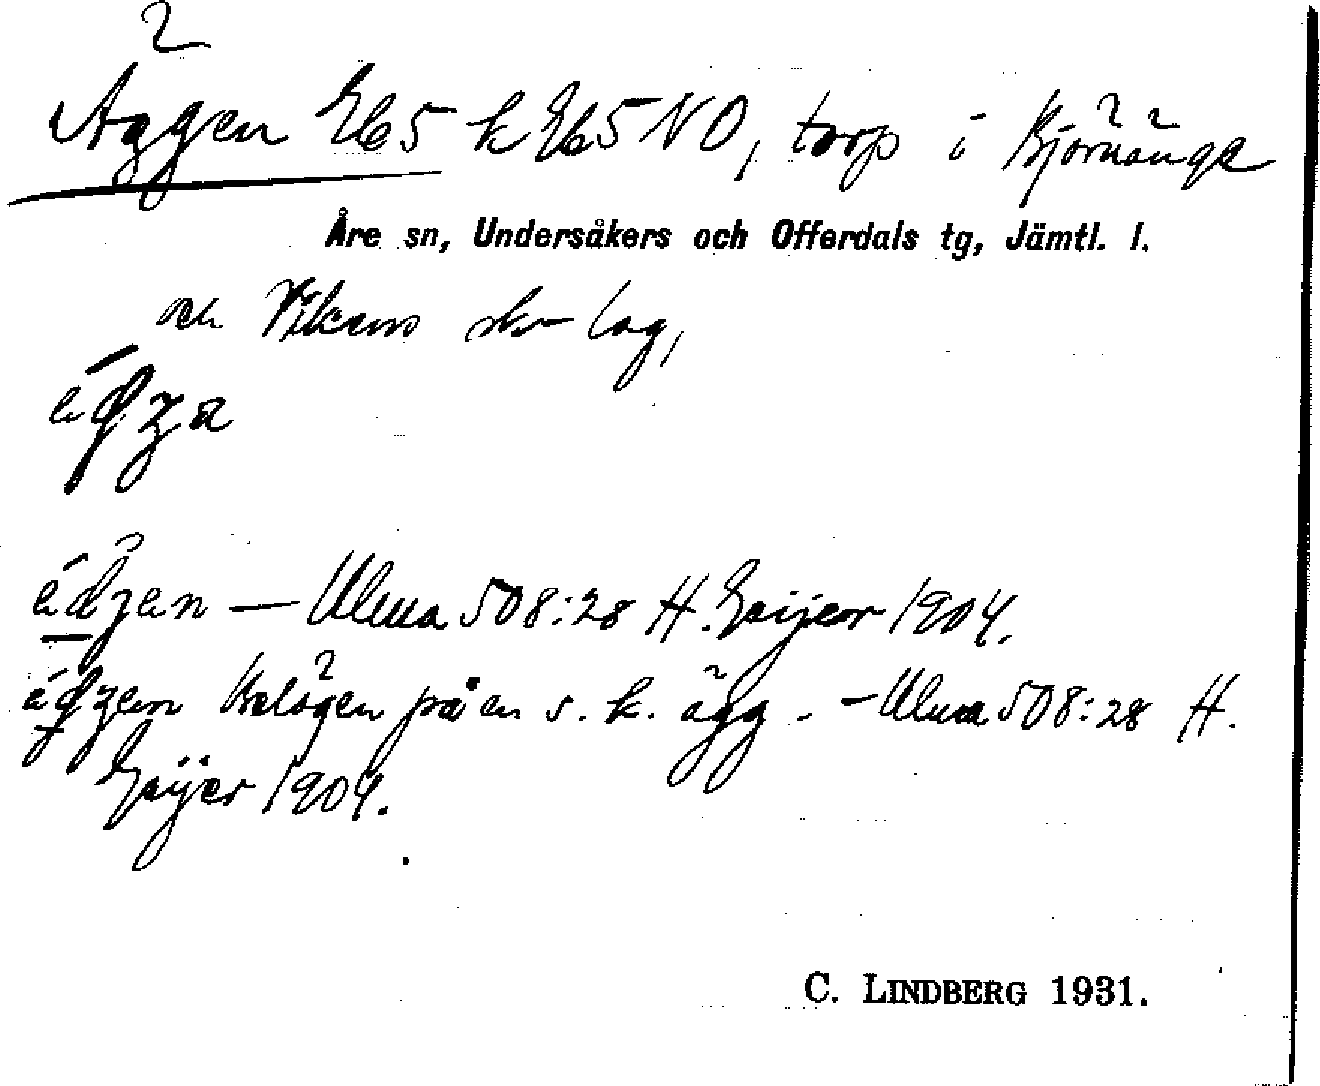 Äggen Eb5 k Eb5 NO, torp i Björnänge
Åre sn, Undersåkers och Offerdals tg, Jämtl. l.
och Vikens sk-lag,
édʒa
édʒen — Uluа 508:28 H. Geijer 1904.
édʒem Belägen på en s. k. ägg. — Uluа 508:28 H.
Geijer 1904.
C. LINDBERG 1931.